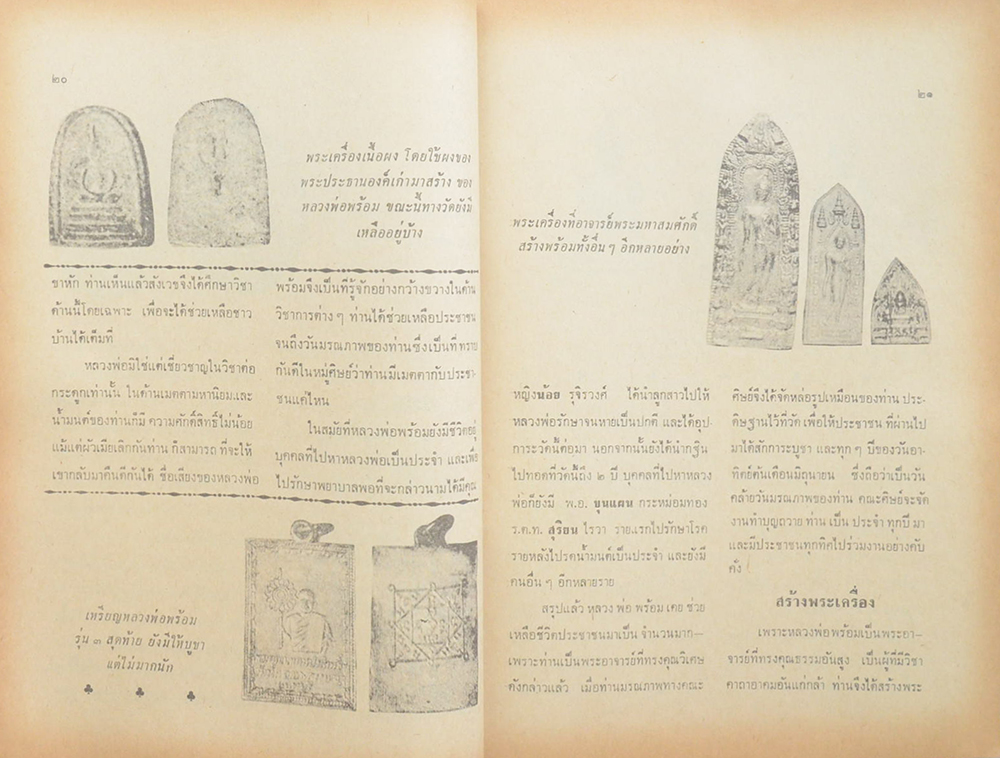 ๒๐
พระเครื่องเนื้อผง โดยใช้ผงของ
พระประธานองค์เก่ามาสร้าง ของ
หลวงพ่อพร้อม ขณะนี้ทางวัดยังมี
เหลืออยู่บ้าง
ขาหัก ท่านเห็นแล้วสังเวชจึงได้ศึกษาวิชา
ด้านนี้โดยเฉพาะ เพื่อจะได้ช่วยเหลือชาว
บ้านได้เต็มที่
หลวงพ่อมิใช่แต่เชี่ยวชาญในวิชาต่อ
กระดูกเท่านั้น ในด้านเมตตามหานิยม.และ
น้ำมนต์ของท่านก็มี ความศักดิ์สิทธิ์ไม่น้อย
แม้แต่ผัวเมียเลิกกันท่าน ก็สามารถ ที่จะให้
เข้ากลับมาคืนดีกันได้ ชื่อเสียงของหลวงพ่อ
พร้อมจึงเป็นที่รู้จักอย่างกว้างขวางในด้าน
วิชาการต่าง ๆ ท่านได้ช่วยเหลือประชาชน
จนถึงวันมรณภาพของท่านซึ่งเป็นที่ ทราบ
กันดีในหมู่ศิษย์ว่าท่านมีเมตตากับประชา-
ชนแค่ไหน
ในสมัยที่หลวงพ่อพร้อมยังมีชีวิตอยู่
บุคคลที่ไปหาหลวงพ่อเป็นประจำ และเพื่อ
ไปรักษาพยาบาลพอที่จะกล่าวนามได้มีคุณ
เหรียญหลวงพ่อพร้อม
รุ่น ๓ สุดท้าย ยังมีให้บูชา
แต่ไม่มากนัก
๒๑
พระเครื่องที่อาจารย์พระมหาสมศักดิ์
สร้างพร้อมทั้งอื่น ๆ อีกหลายอย่าง
หญิงน้อย รุจิรวงศ์ ได้นำลูกสาวไปให้
หลวงพ่อรักษาจนหายเป็นปกติ และได้อุป-
การะวัดนี้ต่อมา นอกจากนั้นยังได้นำกฐิน
ไปทอดที่วัดนี้ถึง ๒ ปี บุคคลที่ไปหาหลวง
พ่อก็ยังมี พ.อ. ขุนแผน กระหม่อมทอง
ร.ต.ท. สุริยน ไรวา รายแรกไปรักษาโรค
รายหลังไปรดน้ำมนต์เป็นประจำ และยังมี
คนอื่น ๆ อีกหลายราย
สรุปแล้ว หลวง พ่อ พร้อม เคย ช่วย
เหลือชีวิตประชาชนมาเป็น จำนวนมาก—
เพราะท่านเป็นพระอาจารย์ที่ทรงคุณวิเศษ
ดังกล่าวแล้ว เมื่อท่านมรณภาพทางคณะ
ศิษย์จึงได้จัดหล่อรูปเหมือนของท่าน ประ-
ดิษฐานไว้ที่วัด เพื่อให้ประชาชน ที่ผ่านไป
มาได้สักการะบูชา และทุก ๆ ปีของวันอา-
ทิตย์ต้นเดือนมิถุนายน ซึ่งถือว่าเป็นวัน
คล้ายวันมรณภาพของท่าน คณะศิษย์จะจัด
งานทำบุญถวาย ท่าน เป็น ประจำ ทุกปี มา
และมีประชาชนทุกทิศไปร่วมงานอย่างคับ
คั่ง
สร้างพระเครื่อง
เพราะหลวงพ่อพร้อมเป็นพระอา-
จารย์ที่ทรงคุณธรรมอันสูง เป็นผู้ที่มีวิชา
คาถาอาคมอันแก่กล้า ท่านจึงได้สร้างพระ